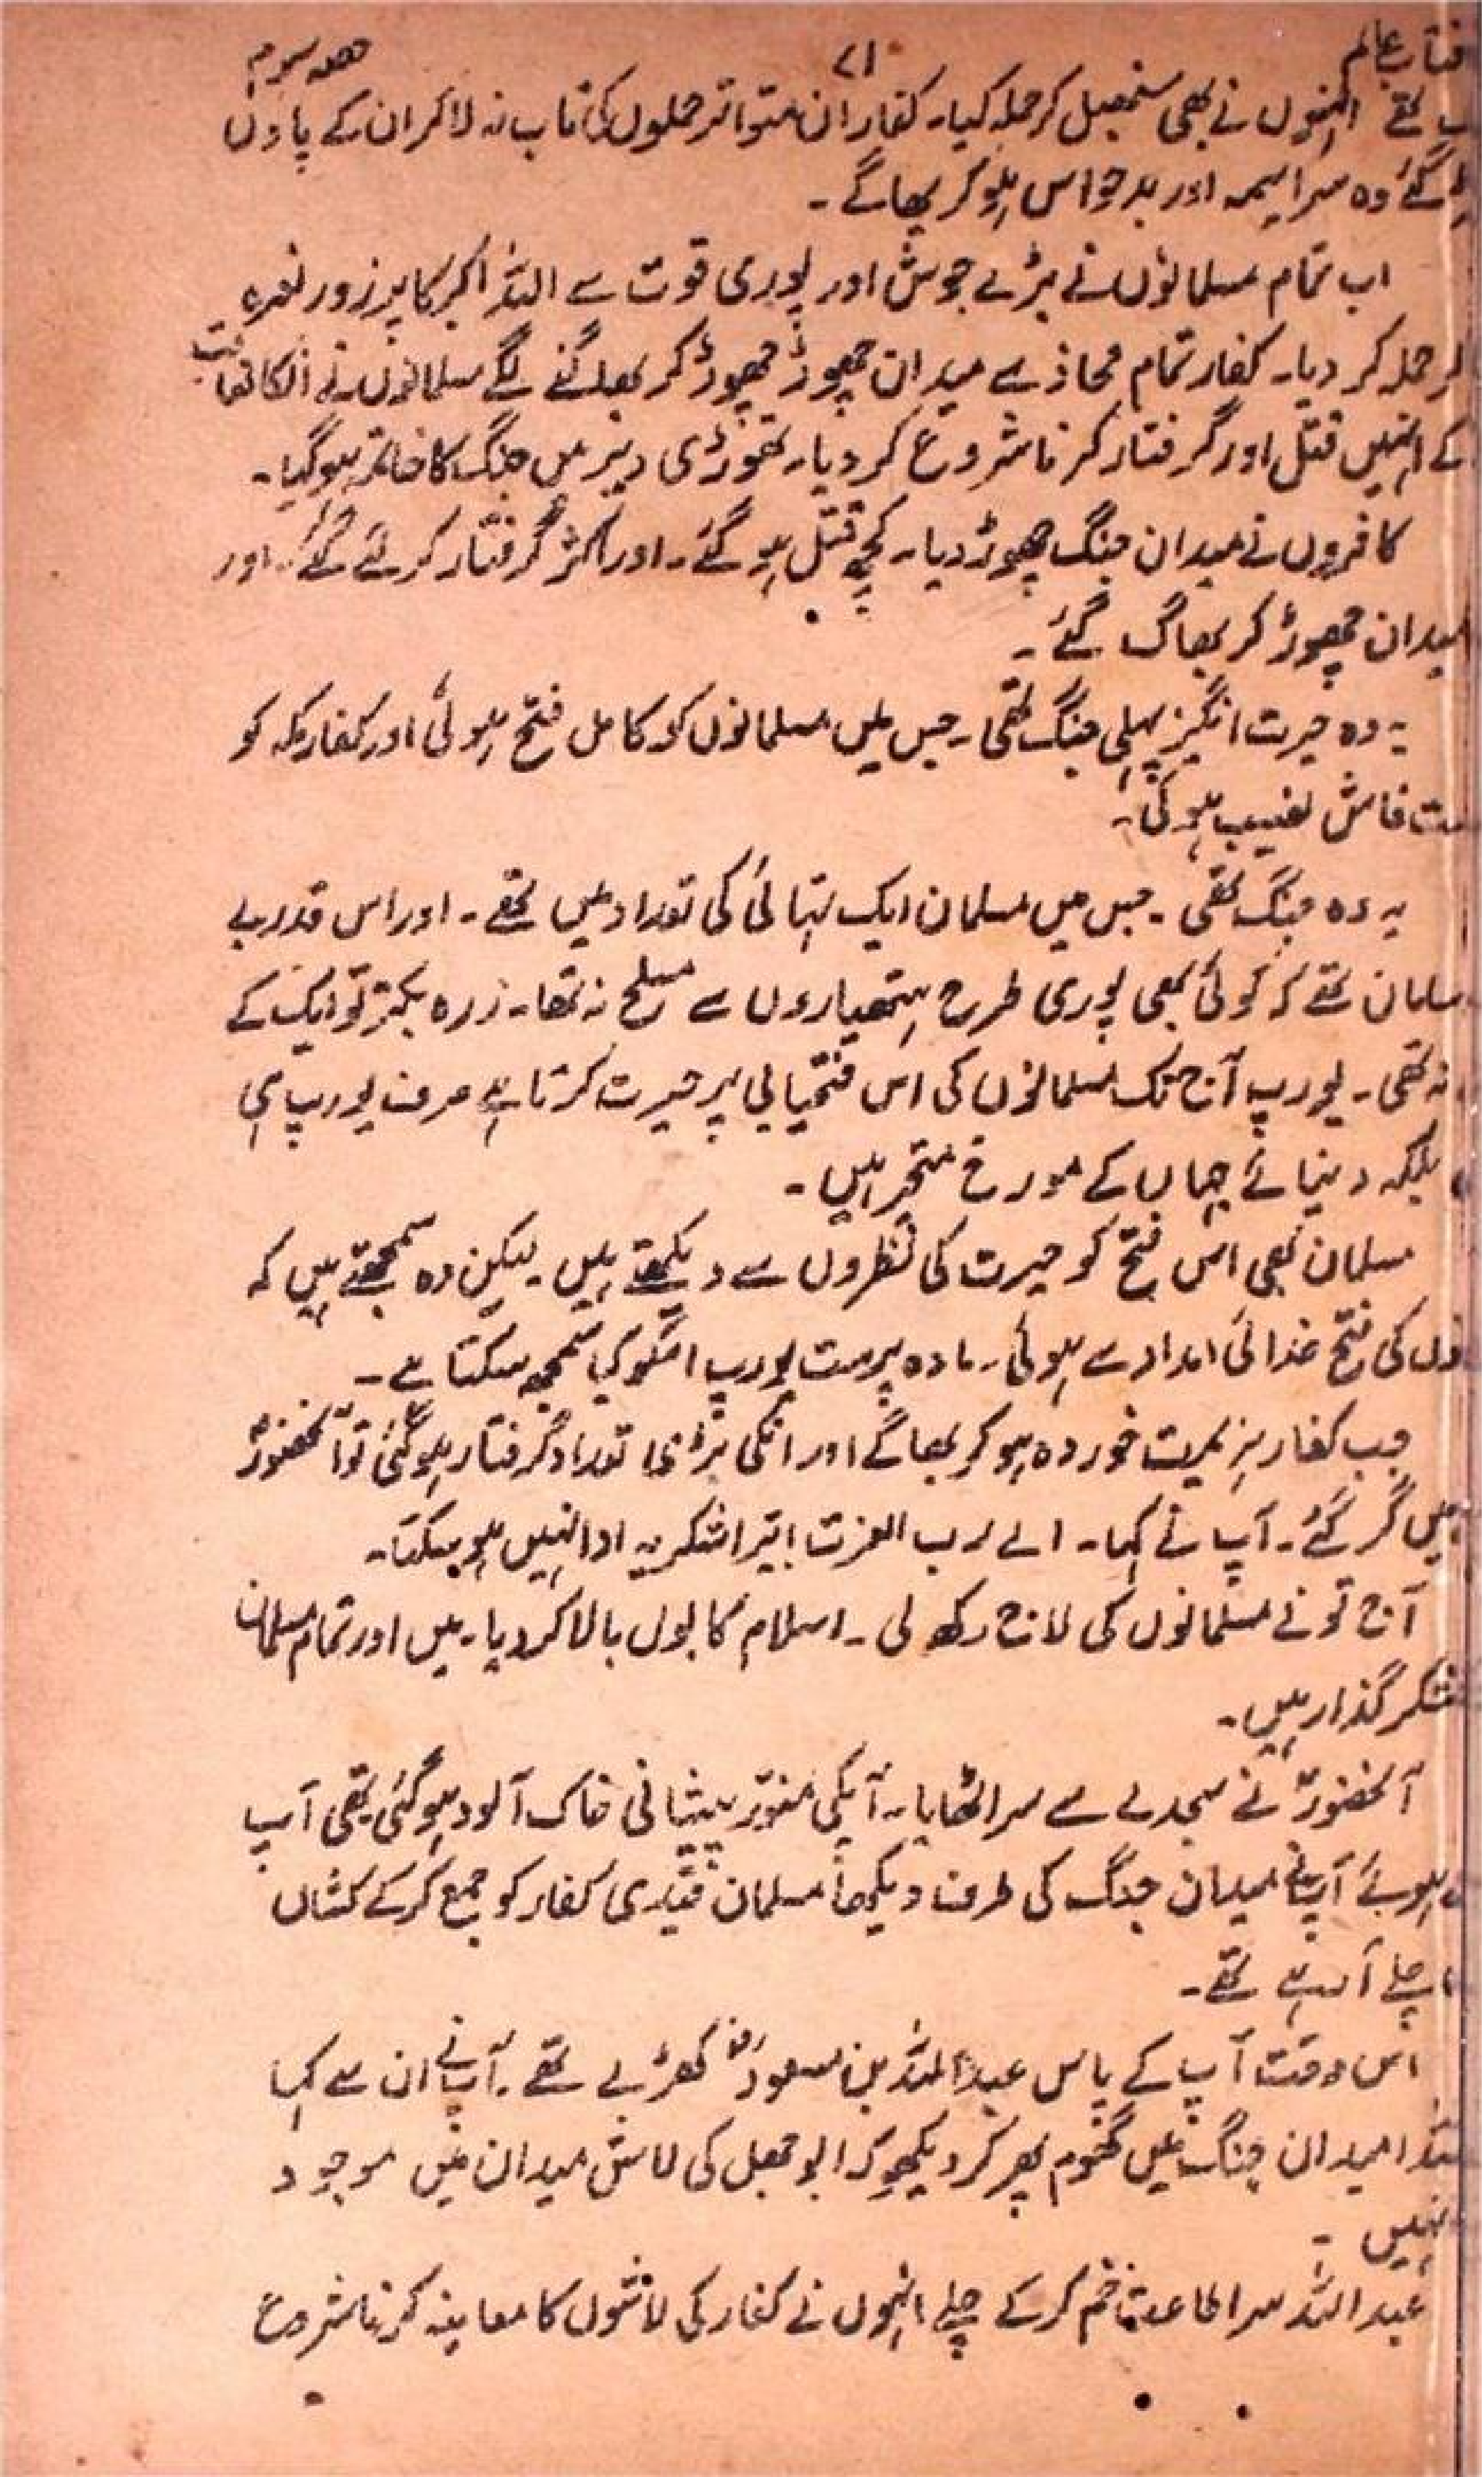 آفتاب عالم ۷۱ حصہ سوم
تھے انہوں نے بھی سنبھل کر حملہ کیا۔ کفار ان متواتر حملوں کی تاب نہ لا کر ان کے پاؤں
گئے وہ سراسیمہ اور بدحواس ہو کر بھاگے۔
اب تمام مسلمانوں نے بڑے جوش اور پوری قوت سے اللہ اکبر کا پرزور نعرہ
کر حملہ کر دیا۔ کفار تمام محاذ سے میدان چھوڑ چھوڑ کر بھاگنے لگے مسلمانوں نے انکا تعاقب
کے انہیں قتل اور گرفتار کرنا شروع کر دیا۔ تھوڑی دیر میں جنگ کا خاتمہ ہو گیا۔
کافروں نے میدان جنگ چھوڑ دیا۔ کچھ قتل ہو گئے۔ اور اکثر گرفتار کر لئے گئے۔ اور
میدان چھوڑ کر بھاگ گئے۔
یہ وہ حیرت انگیز پہلی جنگ تھی۔ جس میں مسلمانوں کو کامل فتح ہوئی اور کفار مکہ کو
فاش نصیب ہوئی۔
یہ وہ جنگ تھی۔ جس میں مسلمان ایک تہائی کی تعداد میں تھے۔ اور اس قدر بے
سامان تھے کہ کوئی بھی پوری طرح ہتھیاروں سے مسلح نہ تھا۔ زرہ بکتر تو ایک کے
نہ تھی۔ یورپ آج تک مسلمانوں کی اس فتحیابی پر حیرت کرتا ہے صرف یورپ ہی
بلکہ دنیائے جہاں کے مورخ متحیر ہیں۔
مسلمان بھی اس فتح کو حیرت کی نظروں سے دیکھتے ہیں۔ لیکن وہ سمجھتے ہیں کہ
کی فتح خدائی امداد سے ہوئی۔ مادہ پرست یورپ اسکو کیا سمجھ سکتا ہے۔
جب کفار ہزیمت خوردہ ہو کر بھاگے اور انکی بڑی تعداد گرفتار ہو گئی تو آنحضورؐ
میں گر گئے۔ آپ نے کہا۔ اے رب العزت! تیرا شکریہ ادا نہیں ہو سکتا۔
آج تو نے مسلمانوں کی لاج رکھ لی۔ اسلام کا بول بالا کر دیا۔ میں اور تمام مسلمان
شکر گذار ہیں۔
آنحضورؐ نے سجدے سے سر اٹھایا۔ آپکی منور پیشانی خاک آلود ہو گئی تھی آپ
ہوئے آپ نے میدان جنگ کی طرف دیکھا مسلمان قیدی کفار کو جمع کر کے کشاں
چلے آ رہے تھے۔
اس وقت آپ کے پاس عبداللہ بن مسعودؓ کھڑے تھے۔ آپ نے ان سے کہا
میدان جنگ میں گھوم پھر کر دیکھو کہ ابوجہل کی لاش میدان میں موجود
نہیں۔
عبداللہ سر اطاعت خم کر کے چلے انہوں نے کفار کی لاشوں کا معاینہ کرنا شروع